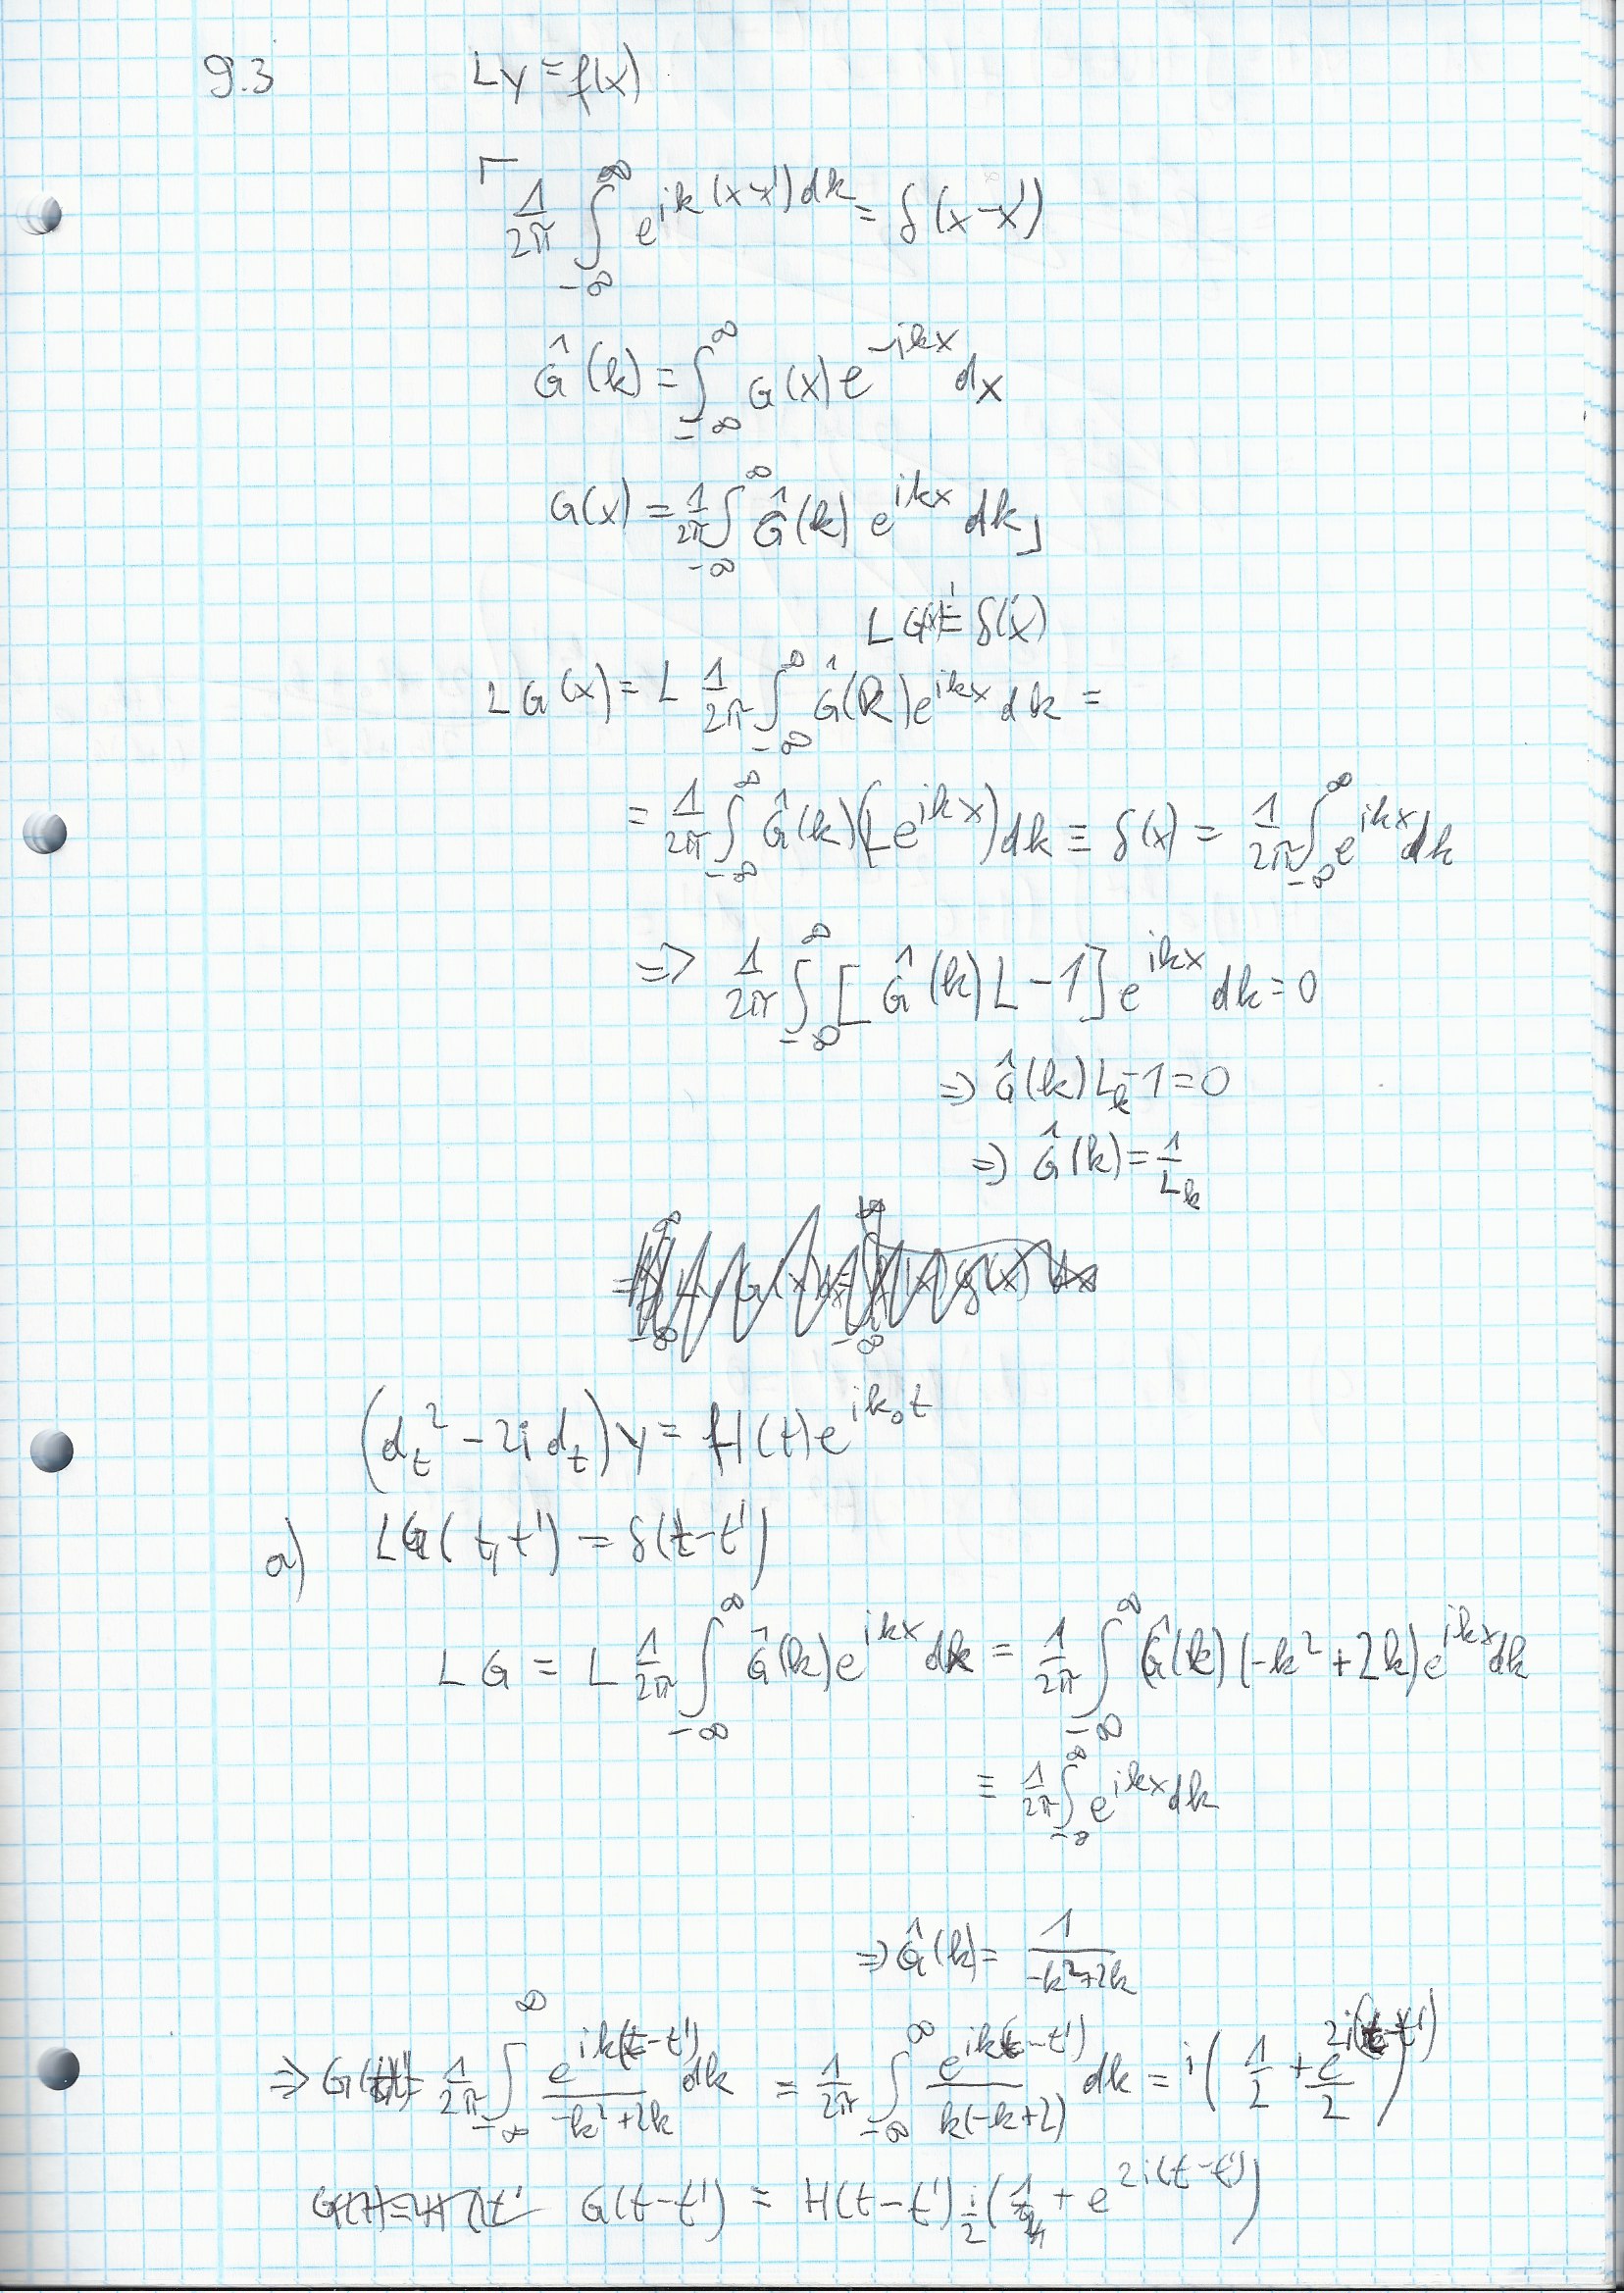 9.3 Ly = f(x)
⌈ 1/2π ∫_{-∞}^{∞} e^{ik(x-x')dk} = δ(x-x')
Ĝ(k) = ∫_{-∞}^{∞} G(x) e^{-ikx} dx
G(x) = 1/2π ∫_{-∞}^{∞} Ĝ(k) e^{ikx} dk ⌋
L G(x) =! δ(x)
L G(x) = L 1/2π ∫_{-∞}^{∞} Ĝ(k) e^{ikx} dk =
= 1/2π ∫_{-∞}^{∞} Ĝ(k) (L e^{ikx}) dk ≡ δ(x) = 1/2π ∫_{-∞}^{∞} e^{ikx} dk
=> 1/2π ∫_{-∞}^{∞} [Ĝ(k) L - 1] e^{ikx} dk = 0
=> Ĝ(k) L_k - 1 = 0
=> Ĝ(k) = 1/L_k
(d_t² - 2i d_t) y = H(t) e^{ik₀t}
a) LG(t,t') = δ(t-t')
LG = L 1/2π ∫_{-∞}^{∞} Ĝ(k) e^{ikx} dk = 1/2π ∫_{-∞}^{∞} Ĝ(k) (-k² + 2k) e^{ikx} dk
≡ 1/2π ∫_{-∞}^{∞} e^{ikx} dk
=> Ĝ(k) = 1/(-k²+2k)
=> G(t,t') = 1/2π ∫_{-∞}^{∞} e^{ik(t-t')}/(-k²+2k) dk = 1/2π ∫_{-∞}^{∞} e^{ik(t-t')}/(k(-k+2)) dk = i(1/2 + e^{2i(t-t')}/2)
G(t-t') = H(t-t') i/2 (1 + e^{2i(t-t')})